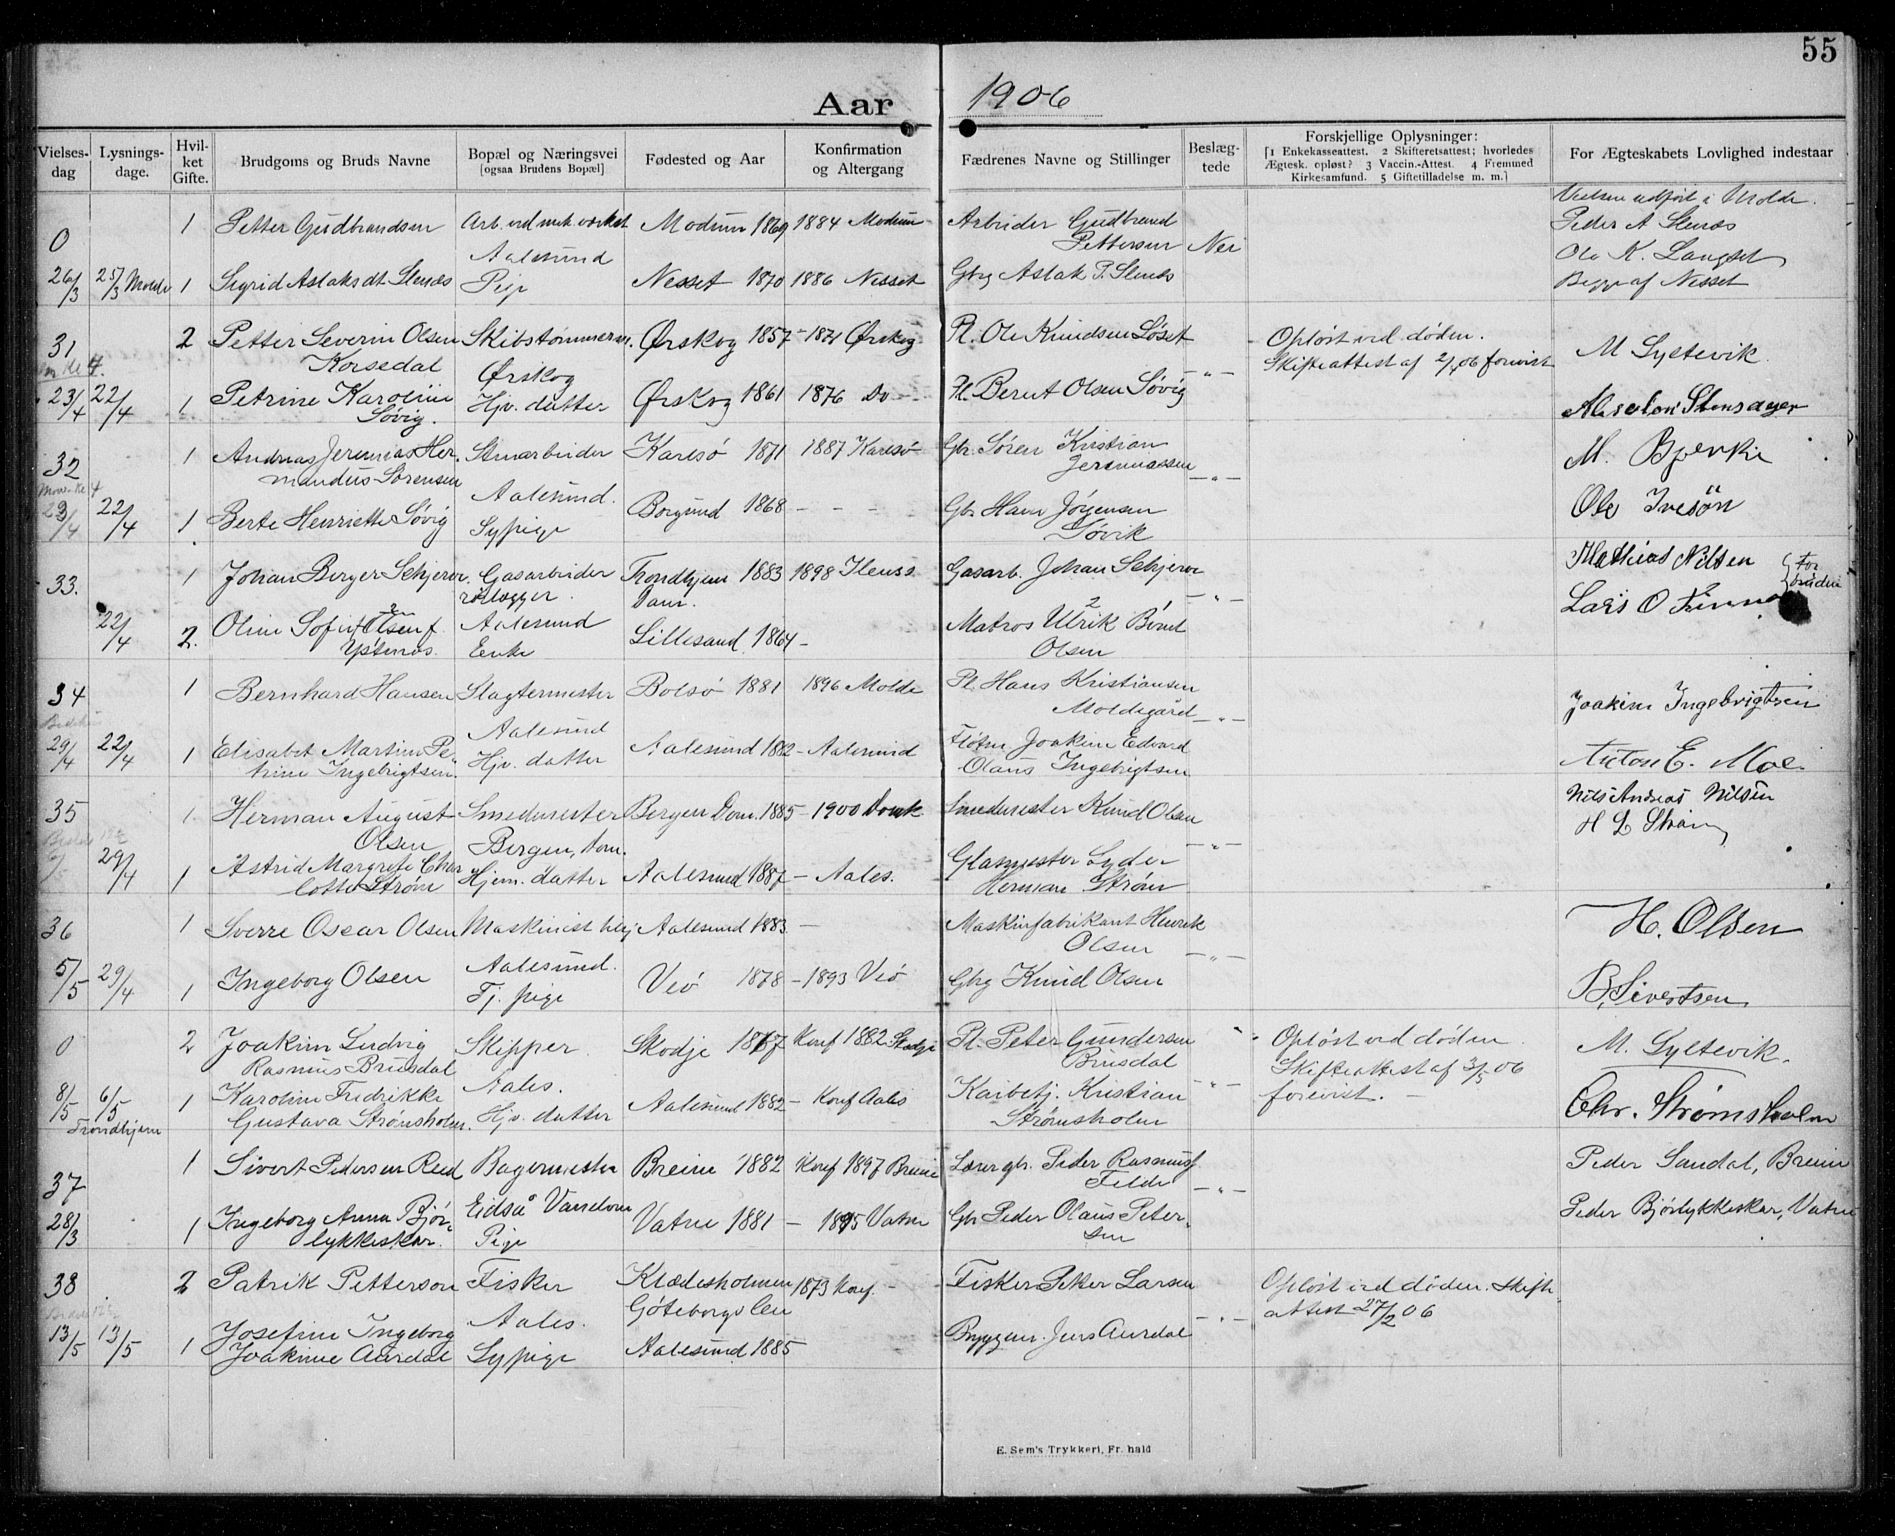 55
Aar 1906
Vielses-dag | Lysnings-dage. | Hvil-ket Gifte. | Brudgoms og Bruds Navne | Bopæl og Næringsvei [ogsaa Brudens Bopæl] | Fødested og Aar | Konfirmation og Altergang | Fædrenes Navne og Stillinger | Beslæg-tede | Forskjellige Oplysninger: [1 Enkekasseattest. 2 Skifteretsattest; hvorledes Ægtesk. opløst? 3 Vaccin.-Attest. 4 Fremmed Kirkesamfund. 5 Giftetilladelse m. m.] | For Ægteskabets Lovlighed indestaar
Vielsen udført i Molde.
0 | 1 | Petter Gudbrandsen | Arb. ved mek værket | Modum 1869 | 1884 Modum | Arbeider Gudbrand | Peder A Stenæs
Aalesund | Pettersen | Nei | Ole K. Langset
26/3 | 25/3 Molde | 1 | Sigrid Aslaksdt Stenæs | Pige | Nesset 1870 | 1886 Nesset | Gbrg Aslak P. Stenæs | Begge af Nesset
31 | 2 | Petter Severin Olsen | Skibstømmerm. | Ørskog 1857 | - 1871 Ørskog | Pl. Ole Knudsen Løset | Opløst ved døden. | M Syltevik
Korsedal | Ørskog | - " - | Skifteattest af 2/4 06 forevist
23/4 | 22/4 | 1 | Petrine Karoline | Hjv. datter | Ørskog 1861 | 1876 Do | Pl. Bernt Olsen Søvig | Stensager
Søvig.
32 | 1 | Andreas Jeremias Her. | Stenarbeider | Karlsø 1871 | 1887 Karlsø | Gbr Søren Kristian | M. Bjerke
mandus Sørensen | Aalesund. | Jeremiassen | - " -
23/4 | 22/4 | 1 | Berte Henriette Søvig | Sypige | Borgund 1868 | - - - | Gbr. Hans Jørgensen | Ole Ivesøn
Søvik
33. | 1 | Johan Berger Schjerve. | Gasarbeider | Trondhjem 1883 | 1898 Ilens s | Gasarb. Johan Schjerve | Mathias Nilsen | for
rørlægger. | Dom. | - " - | Lars O Finnø
22/4 | 2. | Oline Sofie Olsen f | Aalesund | Lillesand 1864 | - | Matros Ulrik Bernt
Ystenæs. | Enke | Olsen
34 | 1 | Bernhard Hansen | Slagtermester | Bolsø 1881 | 1896 Molde | Pl. Hans Kristiansen | Joakim Ingebrigtsen
Aalesund | Moldegård | - " -
29/4 | 22/4 | 1 | Elisabet Martine Pe- | Hjv. datter | Aalesund 1882 | - Aalesund | Joakim Edvard | Anton E. Moe.
trine Ingebrigtsen | Olaus Ingebrigtsen
35 | 1 | Herman August | Smedmester | Bergen Dom. 1885 | - 1900 Domk | Smedmester Knud Olsen | Nils Andreas Nilsen
Olsen | Bergen, Dom. | - " - | H L Strøm
29/4 | 1 | Astrid Margrete Char | Hjem. datter | Aalesund 1887 | - Aales. | Glasmester Lyder
lotte Strøm | Herman Strøm
36 | 1 | Sverre Oscar Olsen | Maskinist | Aalesund 1883 | - | Maskinfabrikant Henrik | H. Olsen
Aalesund. | Olsen | - " -
5/5 | 29/4 | 1 | Ingeborg Olsen | Tj. pige | Veø 1878 | - 1893 Veø | Gbrg Knud Olsen | B. Sivertsen
0 | 2 | Joakim Ludvig | Skipper | Skodje 1857 | Konf 1882 Skodje | Pl. Peter Gundersen | - " | Opløst ved døden | M. Syltevik.
Rasmus Brusdal | Aales. | Brusdal | Skifteattest af 3/5 06
8/5 | 6/5 Trondhjem | 1 | Karoline Fredrikke | Hjv. datter | Aalesund 1882 | - Konf Aales | Kristian | - " - | forevist. - | Chr. Strømsholm
Gustava Strømsholm. | Strømsholm
37 | 1 | Sivert Pedersen Reed | Bagermester | Breim 1882 | Konf 1897 Breim | Lærer gbr. Peder Rasmus | Peder Sandal, Breim
Eidså Vanelven | Felde | - " -
28/3 | 1 | Ingeborg Anna Bjør- | Pige | Vatne 1881 | - 1895 Vatne | Gbr Peder Olaus Peter- | Peder Bjørlykkeskar, Vatne
lykkeskar. | sen
38 | 2 | Patrik Petterson | Fisker | Klædesholmen | 1873 Konf. - | Fisker Peter Larsen | Opløst ved døden. Skifte
Aales. | Göteborgs len | attest 27/2 06
13/5 | 13/5 | 1 | Josefine Ingeborg | Sypige | Aalesund 1885 | Jens Aurdal | - " -
Joakime Aurdal
E. Sem's Trykkeri, Fr. hald